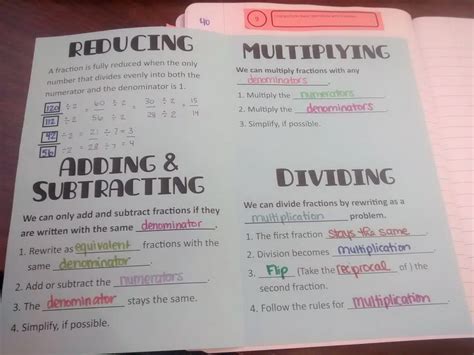 40
REDUCING
A fraction is fully reduced when the only
number that divides evenly into both the
numerator and the denominator is 1.
120 ÷2 = 60 ÷2 = 30 ÷2 = 15
112 ÷2 56 ÷2 28 ÷2 14
42 ÷2 = 21 ÷7 = 3
56 ÷2 = 28 ÷7 = 4
MULTIPLYING
We can multiply fractions with any
denominators.
1. Multiply the numerators
2. Multiply the denominators
3. Simplify, if possible.
ADDING &
SUBTRACTING
We can only add and subtract fractions if they
are written with the same denominator.
1. Rewrite as equivalent fractions with the
same denominator.
2. Add or subtract the numerators.
3. The denominator stays the same.
4. Simplify, if possible.
DIVIDING
We can divide fractions by rewriting as a
multiplication problem.
1. The first fraction stays the same.
2. Division becomes multiplication
3. Flip (Take the reciprocal of ) the
second fraction.
4. Follow the rules for multiplication.